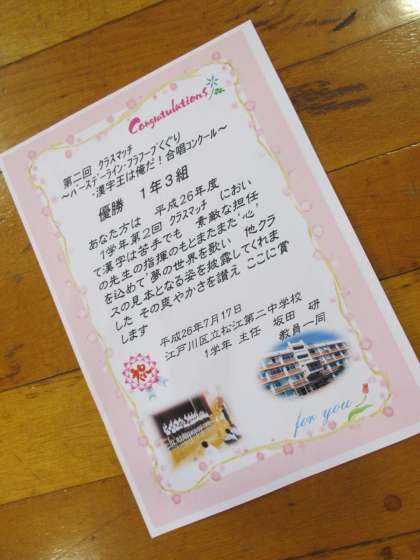 Congratulations
第二回　クラスマッチ
～バースデーライン・フラフープくぐり
・漢字王は俺だ！合唱コンクール～
優勝　１年３組
あなた方は　平成26年度
1学年第2回　クラスマッチ　におい
て漢字は苦手でも　素敵な担任
の先生の指揮のもとまたまた“心”
を込めて“夢の世界を歌い　他クラ
スの見本となる姿を披露してくれま
した　その爽やかさを讃え　ここに賞
します
平成26年7月17日
江戸川区立松江第二中学校
1学年　主任　坂田　研
教員一同
for you